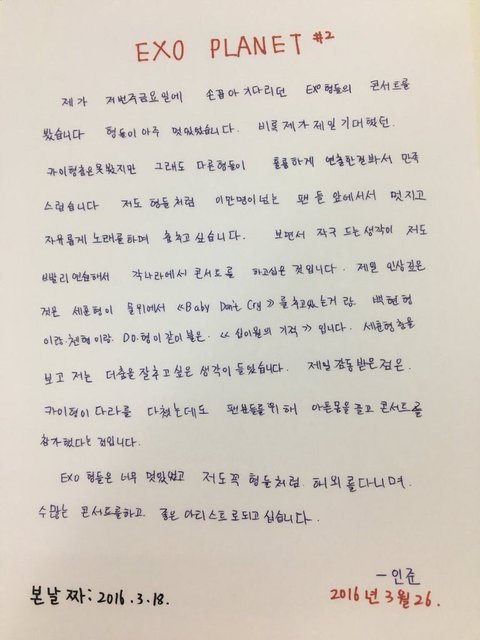 EXO PLANET #2
제가 저번주금요일에 손꼽아 기다리던 EXO형들의 콘서트를
봤습니다 형들이 아주 멋있었습니다. 비록 제가 제일 기대했던.
카이형춤은못봤지만 그래도 다른형들이 훌륭하게 연출한걸봐서 만족
스럽습니다 저도 형들처럼 이만명이넘는 팬들 앞에서서 멋지고
자유롭게 노래를하며 춤추고 싶습니다. 보면서 자꾸 드는생각이 저도
빨리연습해서 각나라에서 콘서트를 하고싶은 것입니다. 제일 인상깊은
것은 세훈형이 물위에서 《Baby Don't Cry》를추고있는거랑. 백현형
이랑.첸형이랑. DO.형이같이불은. 《십이월의 기적》입니다. 세훈형춤을
보고 저는 더춤을잘추고싶은 생각이 들었습니다. 제일감동받은점은.
카이형이다리를 다쳤는데도 팬분들을위해 아픈몸을 끌고 콘서트를
참가했다는 것입니다.
EXO 형들은 너무 멋있었고 저도꼭 형들처럼. 해외를다니며.
수많은 콘서트를하고. 좋은 아티스트로되고 싶습니다.
-인준
본날짜: 2016.3.18. 2016년 3월 26.